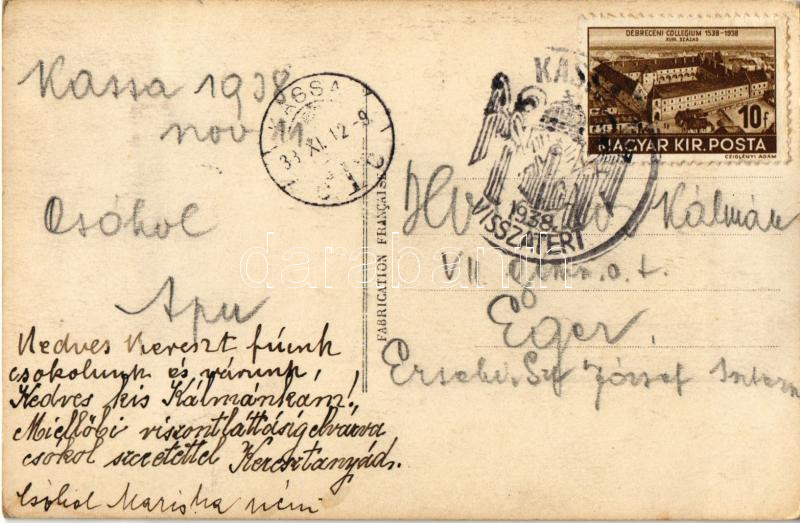 Kassa 1938
nov 11
Csókol
Apu
Kedves Kereszt fiunk
csokolunk és várunk,
Kedves kis Kálmánkam!
Miellőbi viszontláttásig elvárva
csókol szeretettel Keresztanyád.
Csókol Mariska néni
KASSA 1
38 XI. 12 - 9
FABRICATION FRANÇAISE
KASSA
1938.
VISSZATÉRT
DEBRECENI COLLEGIUM 1538-1938
XVIII. SZÁZAD
10f
MAGYAR KIR. POSTA
CZIGLÉNYI ÁDÁM
Kálmán
VII gimn. o. t.
Eger
József Intern
darabanth